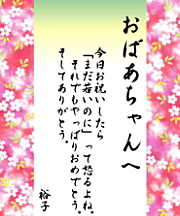 おばあちゃんへ
今日お祝いしたら
「まだ若いのに」って怒るよね。
それでもやっぱりおめでとう。
そしてありがとう。
裕子